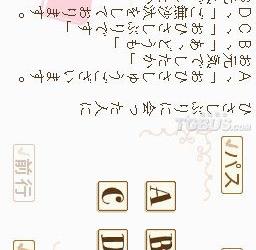 ひさしぶりに会った人に
A、「おひさしゅうございます。
お元気でしたか」
B、「あ、どうも」
C、「おひさしぶりです」
D、「ご無沙汰をして
おります。
パス
前行
A
B
C
D
TOBUS.com